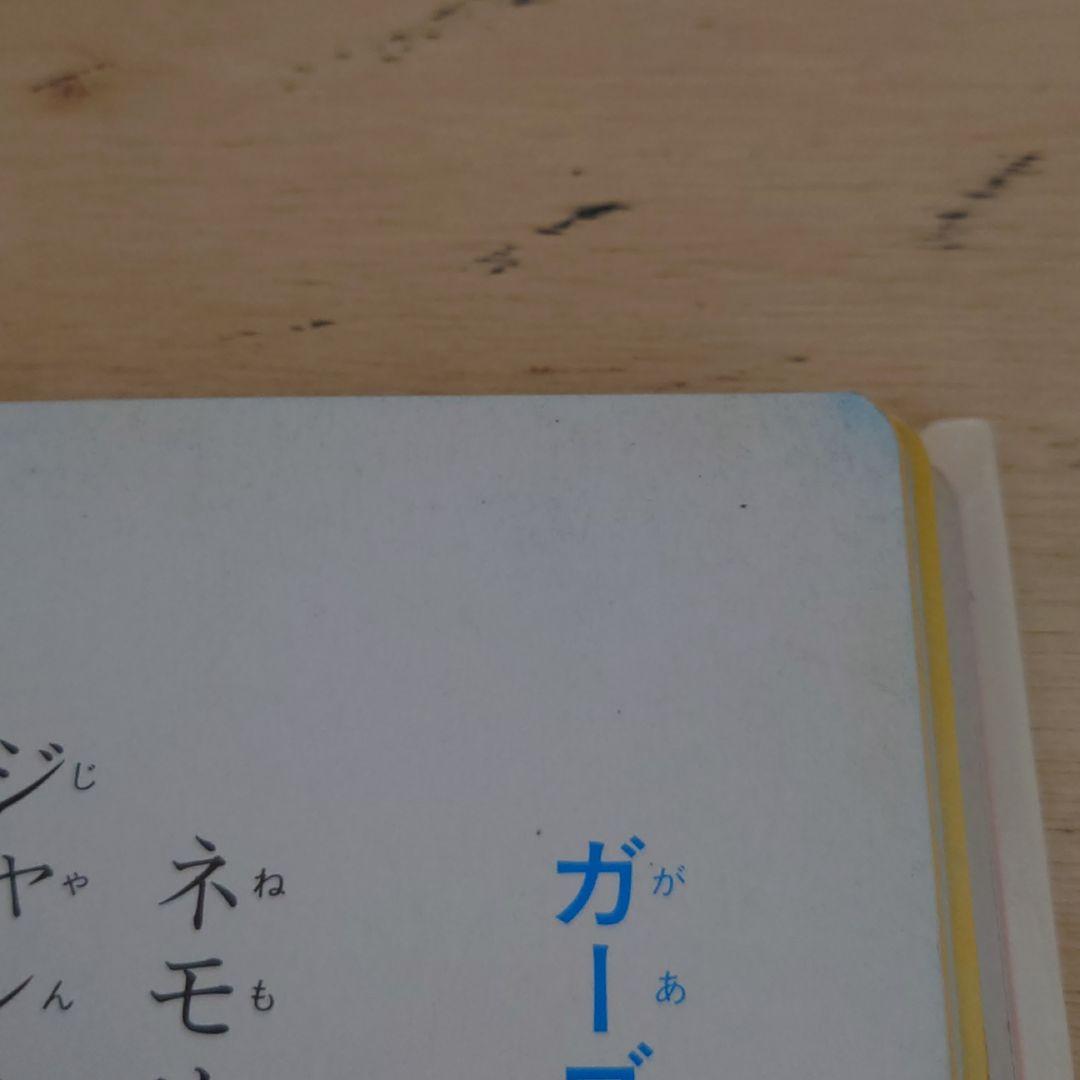 ガー
があ
ネモ
ねも
ジャン
じゃん